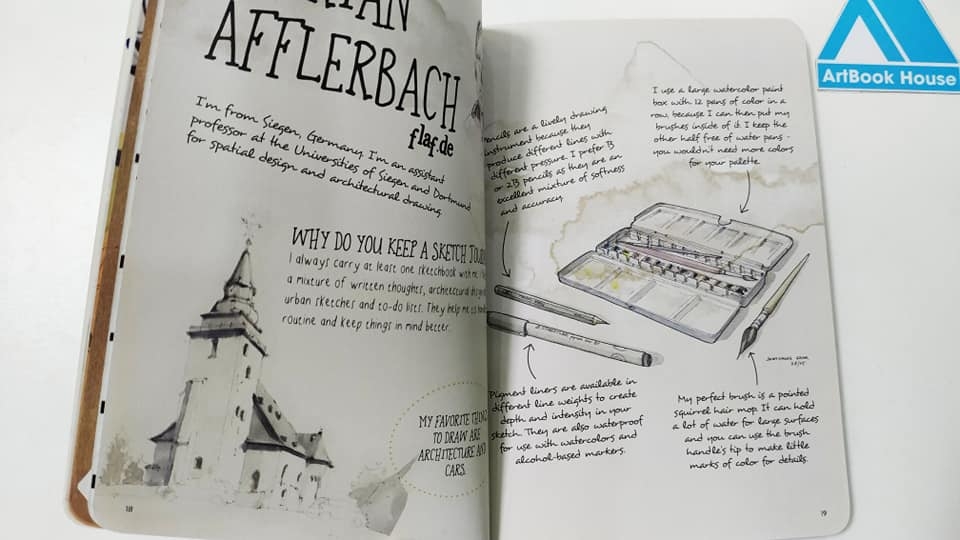 AFFLERBACH
flaf.de
I'm from Siegen, Germany. I'm an assistant
professor at the Universities of Siegen and Dortmund
for spatial design and architectural drawing.
WHY DO YOU KEEP A SKETCH
I always carry at least one sketchbook with me.
a mixture of written thoughts, architectural
urban sketches and to-do lists. They help me
routine and keep things in mind better.
MY FAVORITE THING
TO DRAW ARE
ARCHITECTURE AND
CARS.
18
encils are a lively drawing
instrument because they
produce different lines with
different pressure. I prefer B
or 2B pencils as they are an
excellent mixture of softness
and accuracy.
I use a large watercolor paint
box with 12 pans of color in a
row, because I can then put my
brushes inside of it. I keep the
other half free of water pans -
you wouldn't need more colors
for your palette.
Pigment liners are available in
different line weights to create
depth and intensity in your
sketch. They are also waterproof
for use with watercolors and
alcohol-based markers.
My perfect brush is a pointed
squirrel hair mop. It can hold
a lot of water for large surfaces
and you can use the brush
handle's tip to make little
marks of color for details.
19
ArtBook House